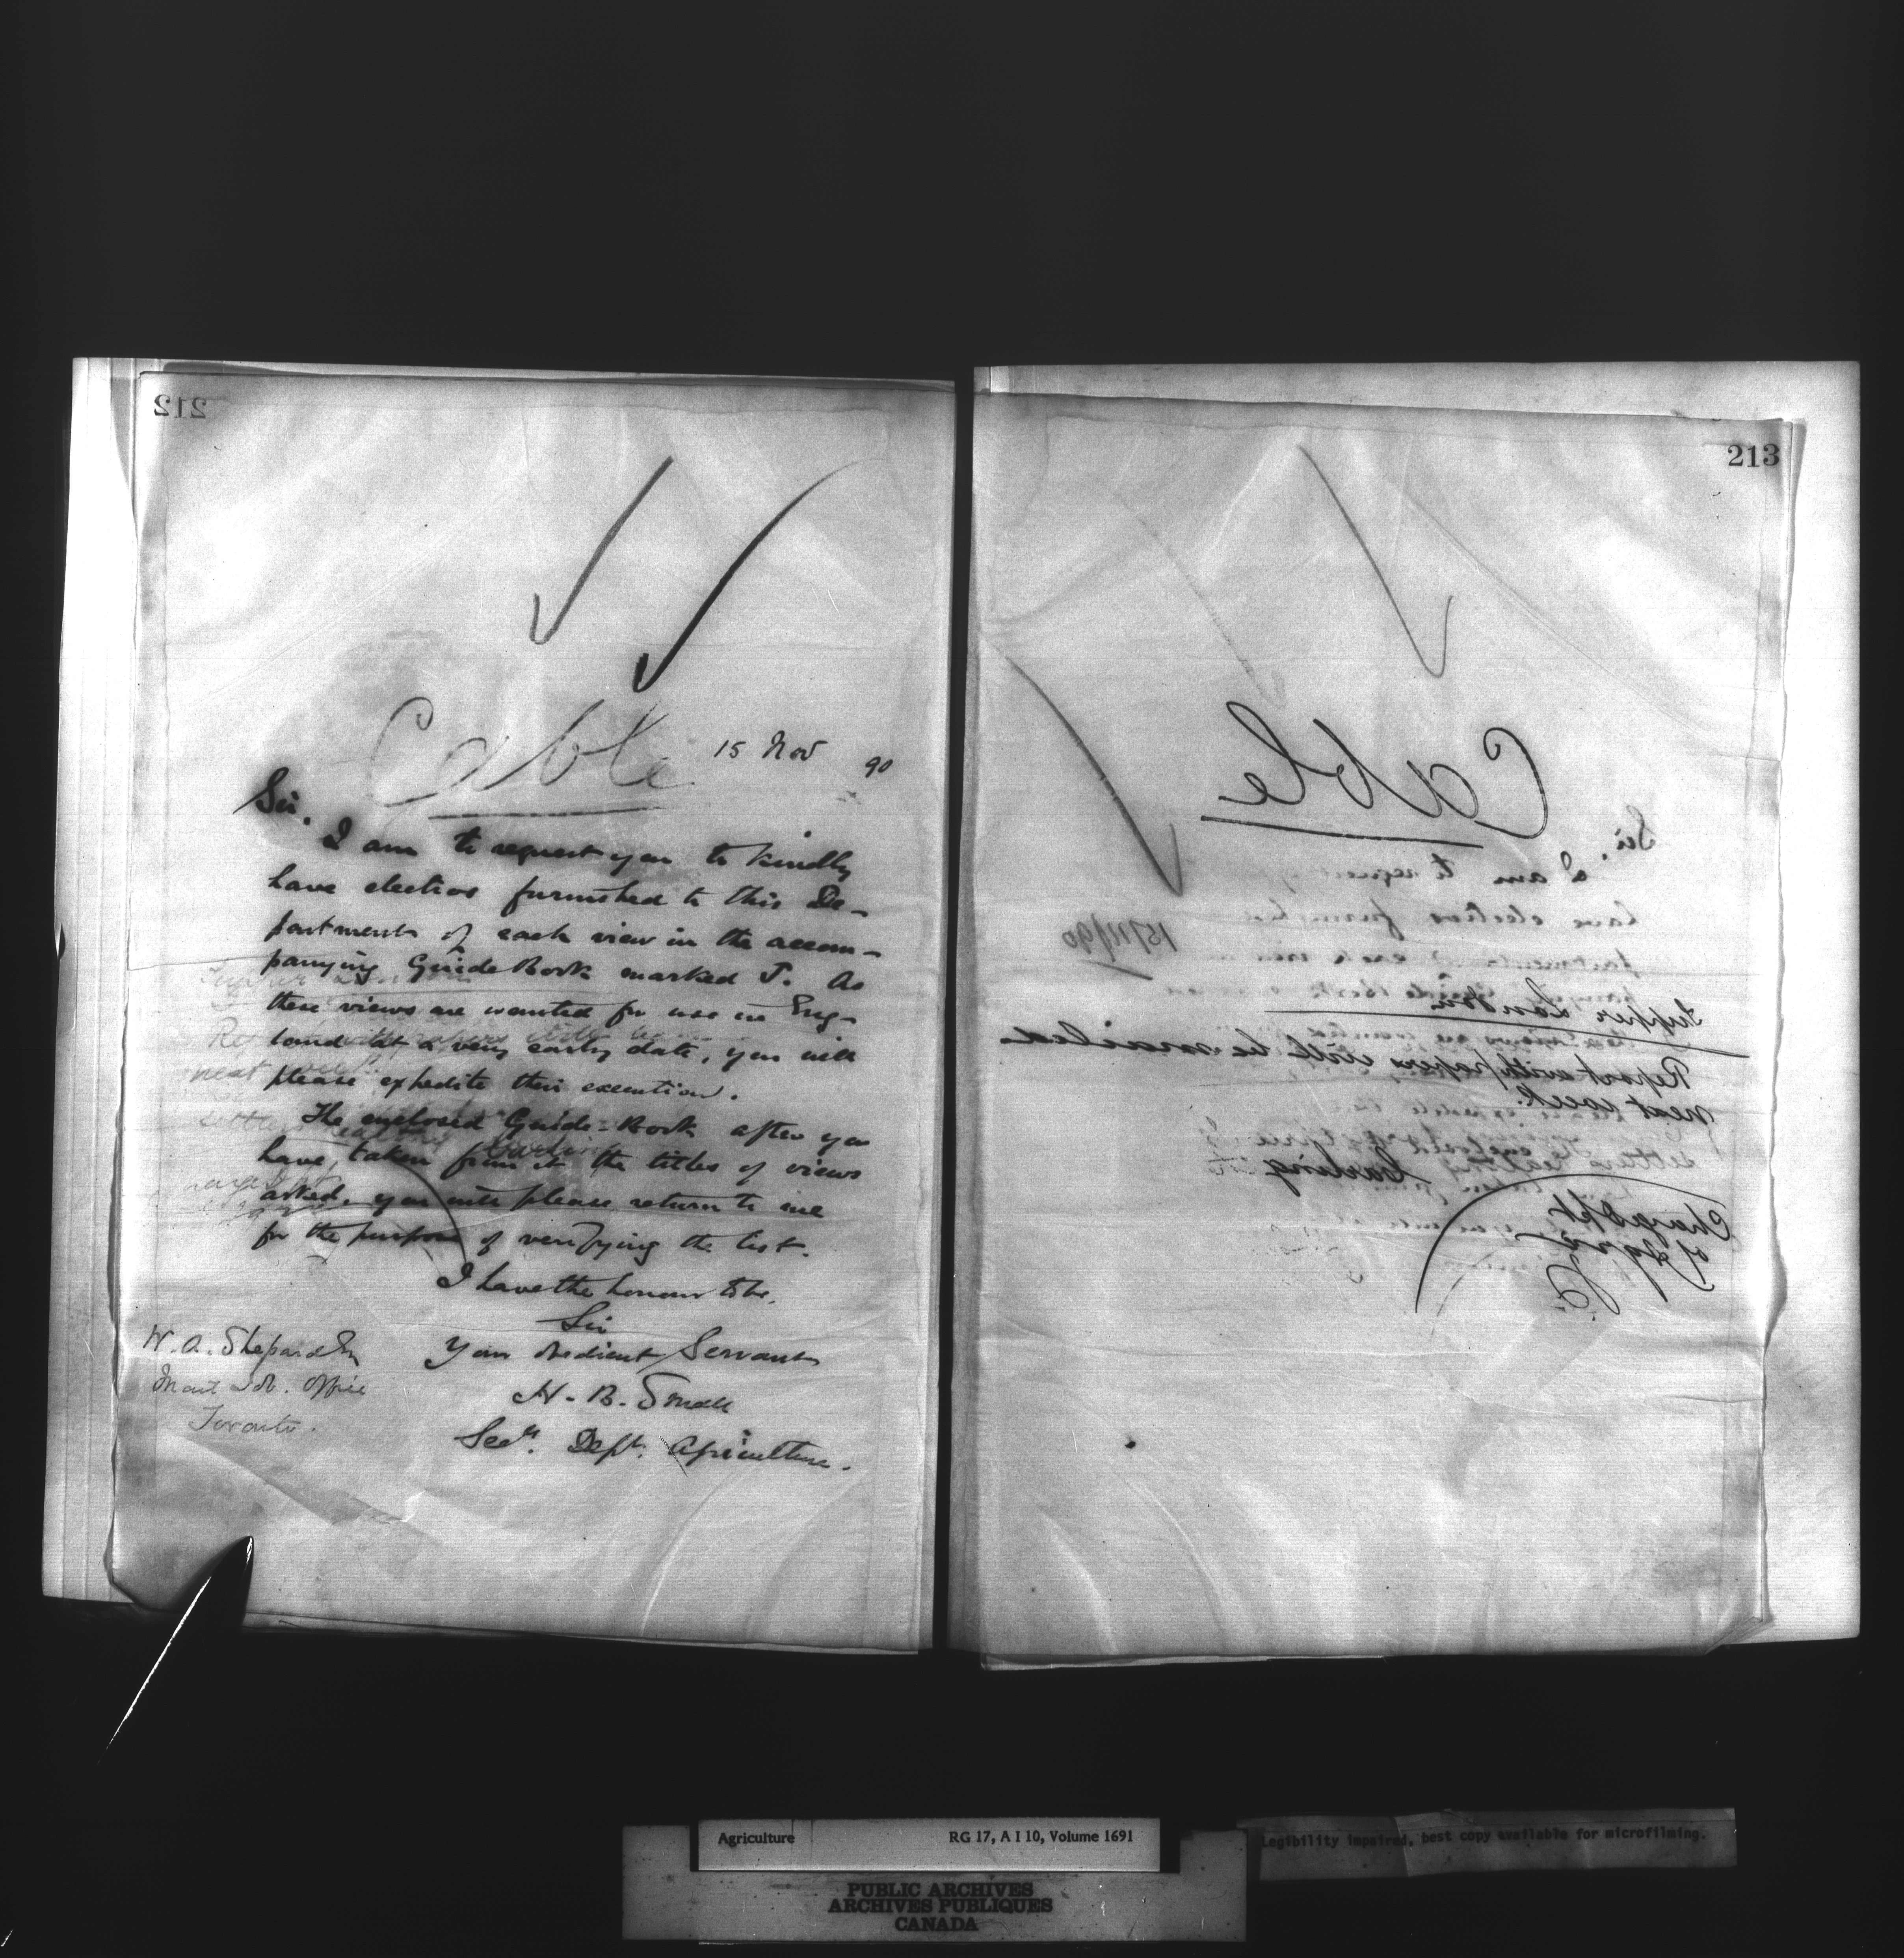 212
15 Nov 90
Cable
Sir.
I am to request you to kindly
have electros furnished to this De-
partment of each view in the accom-
panying Guide Book marked J. As
these views are wanted for use in Eng-
land at a very early date, you will
please expedite their execution.
The enclosed Guide-Book after you
have taken from it the titles of views
asked, you will please return to me
for the purpose of verifying the list.
I have the honour to be,
Sir
Your obedient Servant
H. B. Small
Secy. Dept. Agriculture.
W. A. Shepard
Mail Job. Office
Toronto.
213
Cable
15/11/90
Tupper London
Report with papers will be mailed
next week.
settlers
Carling
Charge Dpt
of Agre
Agriculture
RG 17, A I 10, Volume 1691
Legibility impaired, best copy available for microfilming.
PUBLIC ARCHIVES
ARCHIVES PUBLIQUES
CANADA